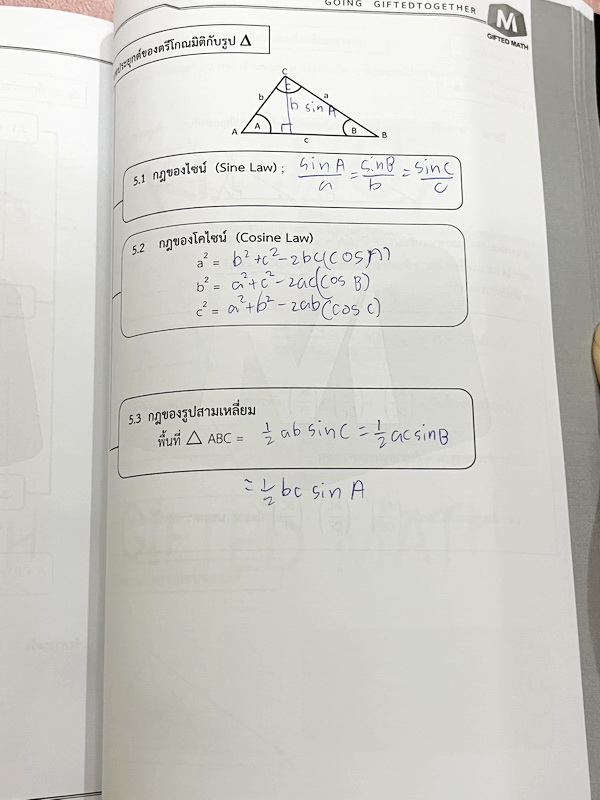 GOING GIFTEDTOGETHER
M
GIFTED MATH
ประยุกต์ของตรีโกณมิติกับรูป Δ
C
b C a
b sin A
A A B B
c
5.1 กฎของไซน์ (Sine Law) ; sin A/a = sin B/b = sin C/c
5.2 กฎของโคไซน์ (Cosine Law)
a² = b² + c² - 2bc(cos A)
b² = a² + c² - 2ac(cos B)
c² = a² + b² - 2ab(cos C)
5.3 กฎของรูปสามเหลี่ยม
พื้นที่ △ ABC = ½ ab sin C = ½ ac sin B
= ½ bc sin A